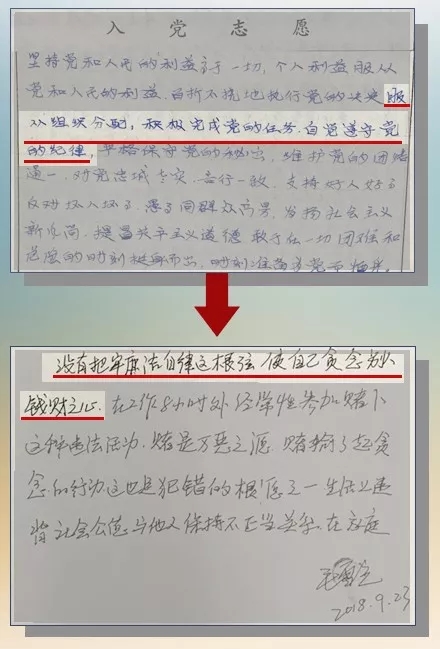 入党志愿
坚持党和人民的利益高于一切，个人利益服从
党和人民的利益，百折不挠地执行党的决定，服
从组织分配，积极完成党的任务，自觉遵守党
的纪律，严格保守党的秘密，维护党的团结
统一，对党忠诚老实，言行一致，支持好人好事
反对坏人坏事，密切联系群众，发扬社会主义
新风尚，提倡共产主义道德，敢于在一切困难和
危险的时刻挺身而出，时刻准备着为党
没有把牢廉洁自律这根弦，使自己贪念别人
钱财之心。在工作8小时外经常性参加赌博
这种违法活动，赌是万恶之源，赌输了起贪
念的行动这也是犯错的根源之一，生活上违
背社会公德，与他人保持不正当关系，在家庭
2018.9.23